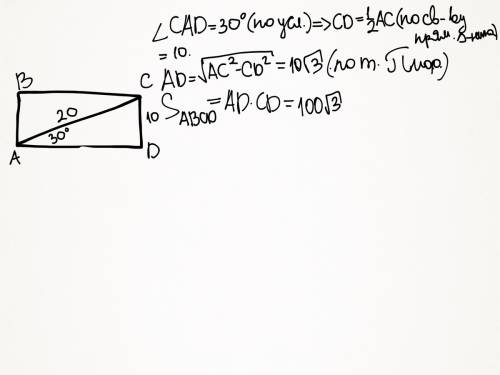 ∠CAD=30° (по усл.) ⇒ CD=½AC (по св-ву
прям. Δ-ника)
= 10.
AD=√AC²-CD² = 10√3 (по т. Пифа.)
S ABCD = AD·CD = 100√3
B
C
20
10
30°
A
D